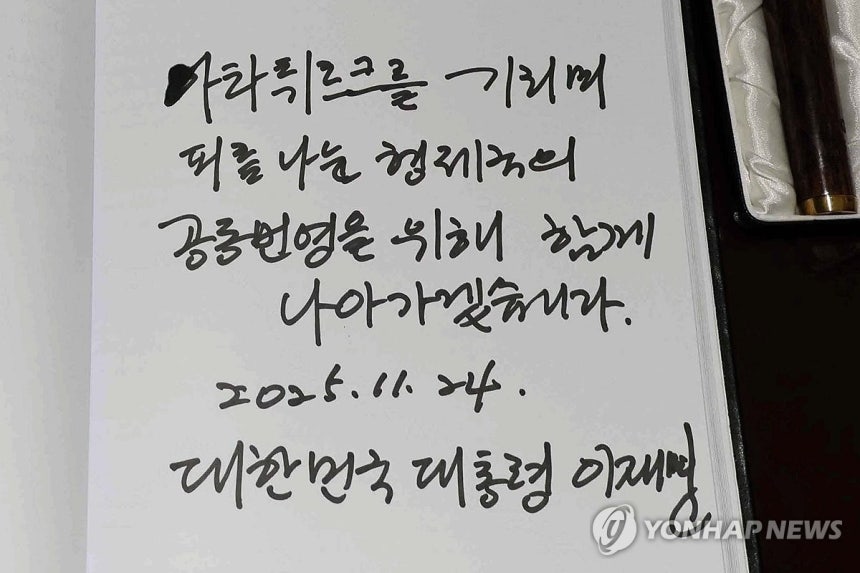 아타튀르크를 기리며
피를 나눈 형제국의
공동번영을 위해 함께
나아가겠습니다.
2025.11.24.
대한민국 대통령 이재명
YONHAP NEWS